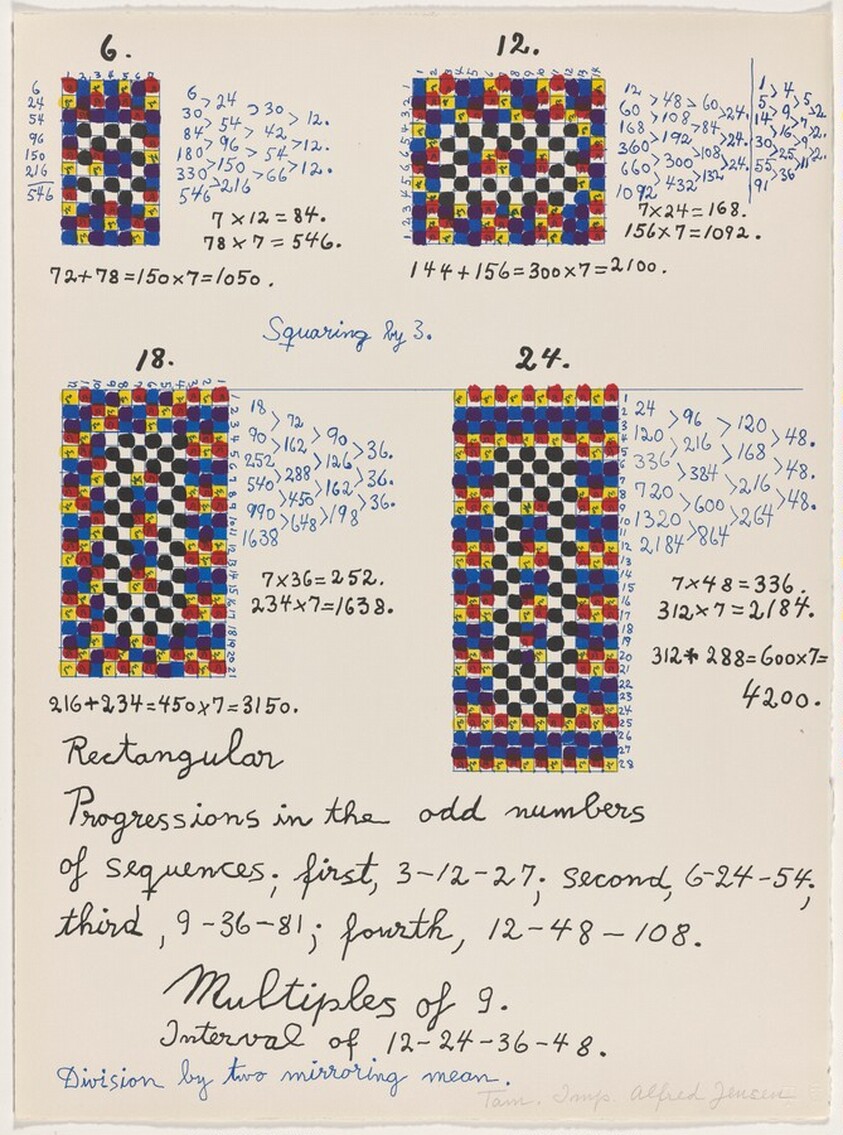 6.
12.
1 2 3 4 5 6 7
1 2 3 4 5 6 7 8 9 10 11 12 13 14
6
24
54
96
150
216
546
6 > 24 > 30 > 12.
30 > 54 > 42 > 12.
84 > 96 > 54 > 12.
180 > 150 > 66
330 > 216
546
7 × 12 = 84.
78 × 7 = 546.
72+78=150×7=1050.
12 > 48 > 60 > 24.
60 > 108 > 84 > 24.
168 > 192 > 108 > 24.
360 > 300 > 132
660 > 432
1092
1 > 4 > 5 > 2.
5 > 9 > 7 > 2.
14 > 16 > 9 > 2.
30 > 25 > 11
55 > 36
91
7×24=168.
156×7=1092.
144+156=300×7=2100.
Squaring by 3.
18.
24.
18 > 72 > 90 > 36.
90 > 162 > 126 > 36.
252 > 288 > 162 > 36.
540 > 450 > 198
990 > 648
1638
1
2
3
4
5
6
7
8
9
10
11
12
13
14
15
16
17
18
19
20
21
7×36=252.
234×7=1638.
216+234=450×7=3150.
1
2
3
4
5
6
7
8
9
10
11
12
13
14
15
16
17
18
19
20
21
22
23
24
25
26
27
28
24 > 96 > 120 > 48.
120 > 216 > 168 > 48.
336 > 384 > 216 > 48.
720 > 600 > 264
1320 > 864
2184
7×48=336.
312×7=2184.
312+288=600×7=
4200.
Rectangular
Progressions in the odd numbers
of sequences; first, 3-12-27; second, 6-24-54;
third, 9-36-81; fourth, 12-48-108.
Multiples of 9.
Interval of 12-24-36-48.
Division by two mirroring mean.
Tam. Imp. Alfred Jensen